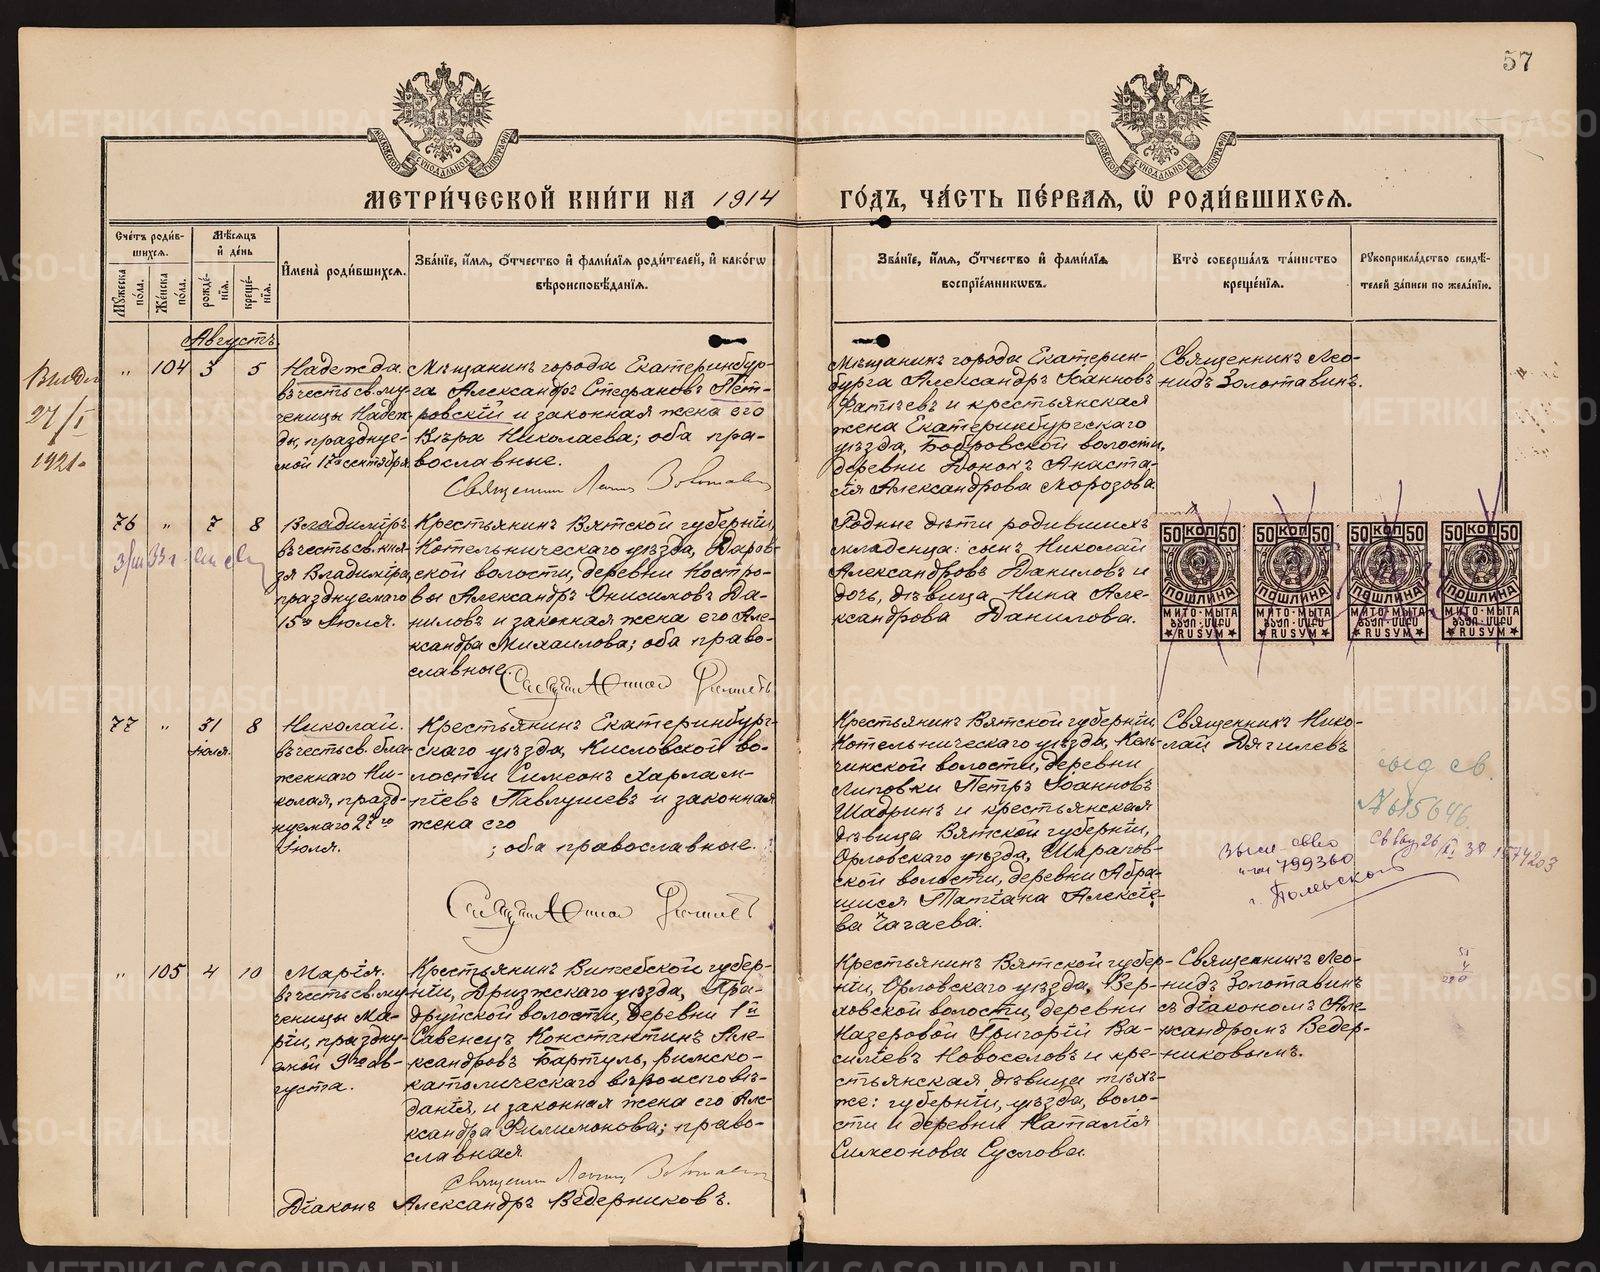 57
МЕТРИ́ЧЕСКОЙ КНИ́ГИ НА 1914
ГО́ДЪ, ЧА́СТЬ ПЕ́РВАЯ, Ѡ҆ РОДИ́ВШИХСЯ.
Сче́тъ роди́в-
шихся.
Мꙋжеска по́ла.
Же́нска по́ла.
Мѣ́сяцъ
и҆ де́нь
рожде́-
нїя.
креще́-
нїя.
И҆мена̀ роди́вшихся.
Зва́нїе, и҆́мя, ѻ҆́тчество и҆ фами́лїя роди́телей, и҆ како́гѡ
вѣроисповѣ́данїя.
Зва́нїе, и҆́мя, ѻ҆́тчество и҆ фами́лїя
воспрїе́мникѡвъ.
Кто̀ соверша́лъ та́инство
креще́нїя.
Рꙋкоприкла́дство свидѣ́-
телей за́писи по жела́нїю.
Августъ.
27/I
1921.
" 104 3 5
Надежда.
въ честь св. му-
ченицы Надеж-
ды, празднуе-
мой 17го сентября
Мѣщанинъ города Екатеринбур-
га Александръ Стефановъ Пет-
ровскій и законная жена его
Вѣра Николаева; оба пра-
вославные.
Священникъ Леонидъ Золотавинъ
Мѣщанинъ города Екатерин-
бурга Александръ Іоанновъ
Фатѣевъ и крестьянская
жена Екатеринбургскаго
уѣзда, Бобровской волости,
деревни Донокъ Анаста-
сія Александрова Морозова
Священникъ Лео-
нидъ Золотавинъ.
76 " 7 8
Владиміръ
въ честь св. кня-
зя Владиміра,
празднуемаго
15го Іюля.
Крестьянинъ Вятской губерніи,
Котельническаго уѣзда, Даров-
ской волости, деревни Костро-
вы Александръ Онисимовъ Да-
ниловъ и законная жена его Але-
ксандра Михаилова; оба право-
славные.
Родные дѣти родившихъ
младенца: сынъ Николай
Александровъ Даниловъ и
дочь, дѣвица Нина Але-
ксандрова Данилова.
50 КОП 50
ПОШЛИНА
МИТО · МЫТА
RUSУM
50 КОП 50
ПОШЛИНА
МИТО · МЫТА
RUSУM
50 КОП 50
ПОШЛИНА
МИТО · МЫТА
RUSУM
50 КОП 50
ПОШЛИНА
МИТО · МЫТА
RUSУM
77 " 31 8
Іюля.
Николай.
въ честь св. бла-
женнаго Ни-
колая, празд-
нуемаго 27го
Іюля.
Крестьянинъ Екатеринбург-
скаго уѣзда, Кисловской во-
лости Симеонъ Харлам-
піевъ Павлушевъ и законная
жена его
; оба православные.
Крестьянинъ Вятской губерніи,
Котельническаго уѣзда, Кель-
чинской волости, деревни
Липовки Петръ Іоанновъ
Шадринъ и крестьянская
дѣвица Вятской губерніи,
Орловскаго уѣзда, Шарапов-
ской волости, деревни Абра-
шися Татіана Алексѣе-
ва Чагаева.
Священникъ Нико-
лай Дягилевъ
№ 015646
799360
" 105 4 10
Марія.
въ честь св. му-
ченицы Ма-
ріи, праздну-
емой 9го ав-
густа.
Крестьянинъ Витебской губер-
ніи, Дризжскаго уѣзда, Пра-
друйской волости, деревни 1й
Савенецъ Константинъ Але-
ксандровъ Бартуль, римско-
католическаго вѣроисповѣ-
данія, и законная жена его Але-
ксандра Филимонова; право-
славная.
Священникъ Леонидъ Золотавинъ
Діаконъ Александръ Ведерниковъ.
Крестьянинъ Вятской губер-
ніи, Орловскаго уѣзда, Вер-
ховской волости, деревни
Назеровой Григорій Ва-
силіевъ Новоселовъ и кре-
стьянская дѣвица тѣхъ-
же: губерніи, уѣзда, воло-
сти и деревни Наталія
Симеонова Суслова.
Священникъ Лео-
нидъ Золотавинъ
съ діакономъ Але-
ксандромъ Ведер-
никовымъ.
METRIKI.GASO-URAL.RU